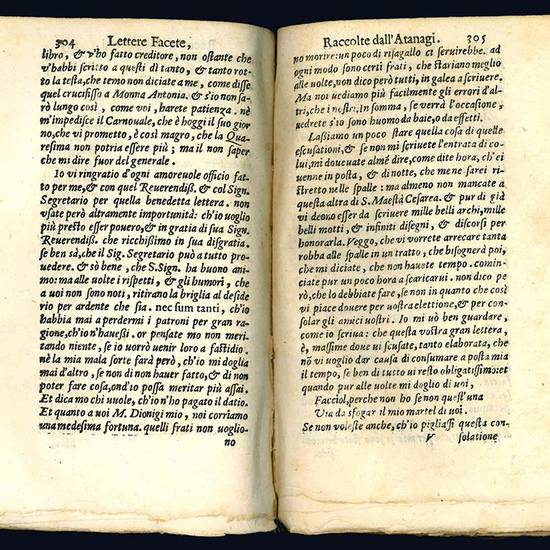 304 Lettere Facete,
libro, & v'ho fatto creditore, non ostante che
v'habbi scritto a questi dì tanto, & tanto rot-
to la testa, che temo non diciate a me, come disse
quel crucifisso a Monna Antonia. & s'io non sa-
rò lungo così, come voi, harete patienza. nè
m'impedisce il Carnouale, che è hoggi il suo gior
no, che vi prometto, è così magro, che la Qua-
resima non potria essere più; ma il non saper
che mi dire fuor del generale.
Io vi ringratio d'ogni amoreuole officio fat
to per me, & con quel Reuerendiss. & col Sign.
Segretario per quella benedetta lettera. non
vsate però altramente importunità: ch'io uoglio
più presto esser pouero, & in gratia di sua Sign.
Reuerendiss. che ricchissimo in sua disgratia.
se ben sà, che il Sig. Segretario può a tutto pro-
uedere. & sò bene, che S. Sign. ha buono ani-
mo: ma alle uolte i rispetti, & gli humori, che
a uoi non sono noti, ritirano la briglia al deside
rio per ardente che sia. nec sum tanti, ch'io
habbia mai a perdermi i patroni per gran ra-
gione, ch'io n'hauessi. or pensate mo non meri-
tando niente, se io uorrò uenir loro a fastidio.
nè la mia mala sorte farà però, ch'io mi doglia
mai d'altro, se non di non hauer fatto, & di non
poter fare cosa, ond'io possa meritar più assai.
Et dica mo chi uuole, ch'io n'ho pagato il datio.
Et quanto a uoi M. Dionigi mio, noi corriamo
una medesima fortuna. quelli frati non uoglio-
no
Raccolte dall'Atanagi. 305
no morire: un poco di risagallo ci seruirebbe. ad
ogni modo sono certi frati, che stariano meglio
alle uolte, non dico però tutti, in galea a scriuere.
Ma noi uediamo più facilmente gli errori d'al-
tri, che i nostri. In somma, se verrà l'occasione,
uedrete s'io sono huomo da baie, o da effetti.
Lassiamo un poco stare quella cosa di quelle
escusationi, & se non mi scriuete l'entrata di co-
lui, mi doueuate almē dire, come dite hora, ch'ei
uenne in posta, & di notte, che me ne sarei ri-
stretto nelle spalle: ma almeno non mancate a
questa altra di S. Maestà Cesarea. & pur di già
vi deono esser da scriuere mille belli archi, mille
belli motti, & infiniti disegni, & discorsi per
honorarla. Veggo, che vi vorrete arrecare tanta
robba alle spalle in un tratto, che bisognerà poi,
che mi diciate, che non hauete tempo. comin-
ciate pur un poco hora a scaricarui. non dico pe
rò, che lo debbiate fare, se non in quanto che così
vi piace douer per uostra elettione, & per con-
solar gli amici uostri. Io mi uò ben guardare,
come io scriua: che questa vostra gran lettera,
è, massime doue ui scusate, tanto elaborata, che
nō vi uoglio dar causa di consumare a posta mia
il tempo, se ben di tutto ui resto obligatissimo: et
quando pur alle uolte mi doglio di uoi,
Facciol, perche non ho se non quest'una
Via da sfogar il mio martel di uoi.
Se non voleste anche, ch'io pigliassi questa con-
V solatione